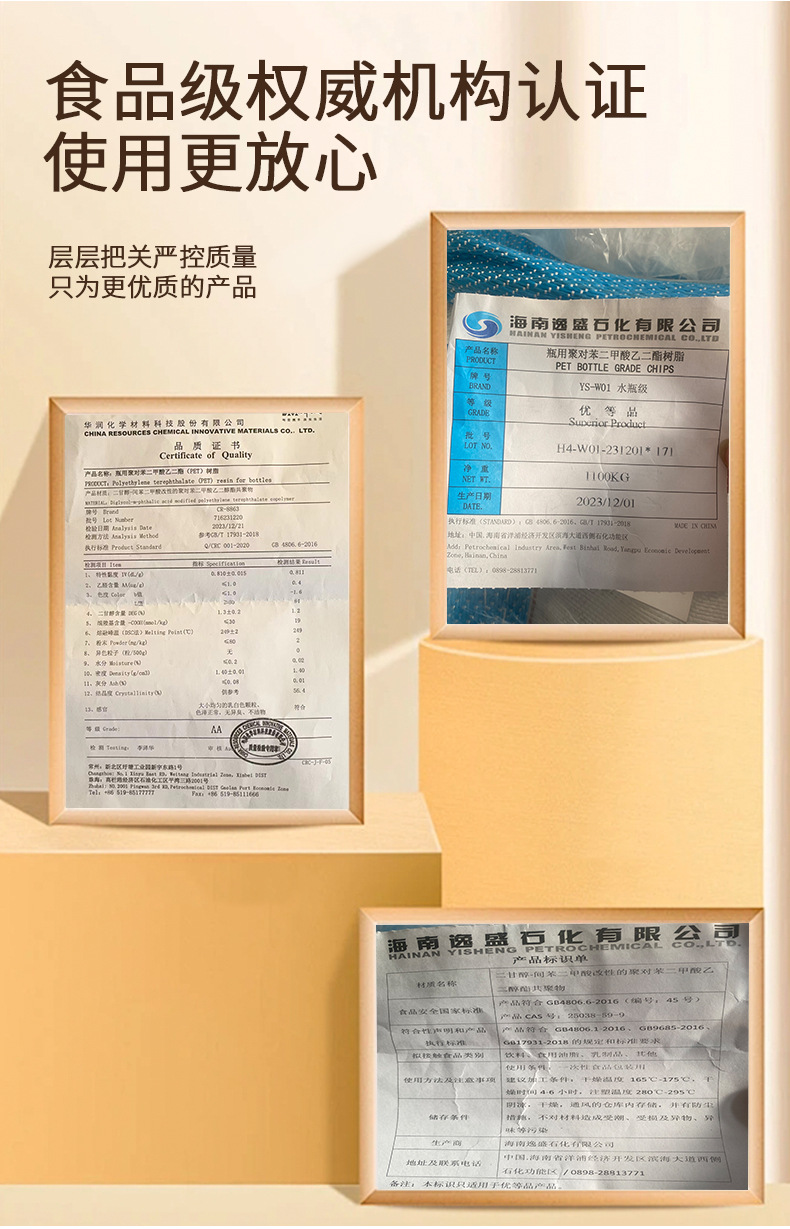 食品级权威机构认证
使用更放心
层层把关严控质量
只为更优质的产品
海南逸盛石化有限公司
HAINAN YISHENG PETROCHEMICAL CO.,LTD
产品名称 PRODUCT 瓶用聚对苯二甲酸乙二酯树脂 PET BOTTLE GRADE CHIPS
牌号 BRAND YS-W01 水瓶级
等级 GRADE 优等品 Superior Product
批号 LOT NO. H4-W01-231201* 171
净重 NET WT. 1100KG
生产日期 DATE. 2023/12/01
执行标准（STANDARD）：GB 4806.6-2016、GB/T 17931-2018 MADE IN CHINA
地址：中国.海南省洋浦经济开发区滨海大道西侧石化功能区
Add: Petrochemical Industry Area,West Binhai Road,Yangpu Economic Development
Zone,Hainan,China
电话（TEL）：0898-28813771
华润化学材料科技股份有限公司
CHINA RESOURCES CHEMICAL INNOVATIVE MATERIALS CO., LTD.
品质证书
Certificate of Quality
产品名称：瓶用聚对苯二甲酸乙二酯（PET）树脂
PRODUCT: Polyethylene terephthalate (PET) resin for bottles
产品材质：二甘醇-间苯二甲酸改性的聚对苯二甲酸乙二醇酯共聚物
MATERIAL: Diglycol-m-phthalic acid modified polyethylene terephthalate copolymer
牌号 Brand CR-8863
批号 Lot Number 716231220
检验日期 Analysis Date 2023/12/21
检测方法 Analysis Method 参考GB/T 17931-2018
执行标准 Product Standard Q/CRC 001-2020 GB 4806.6-2016
检测项目 Item 指标 Specification 检测结果 Result
1、特性黏度 IV(dL/g) 0.810±0.015 0.811
2、乙醛含量 AA(ug/g) ≤1.0 0.4
3、色度 Color b值 ≤1.0 -1.6
L值 84
4、二甘醇含量 DEG(%) 1.3±0.2 1.2
5、端羧基含量 -COOH(mmol/kg) ≤30 19
6、熔融峰温（DSC法）Melting Point(℃) 249±2 249
7、粉末 Powder(mg/kg) ≤60 2
8、异色粒子（粒/500g） 无 0
9、水分 Moisture(%) ≤0.2 0.02
10、密度 Density(g/cm3) 1.40±0.01 1.40
11、灰分 Ash(%) ≤0.08 0.01
12、结晶度 Crystallinity(%) 供参考 56.4
13、感官 大小均匀的乳白色颗粒， 符合
色泽正常、无异臭、不洁物
等级 Grade: AA
检测 Testing: 李泽华 审核
质量检验专用章
CRC-J-F-05
常州：新北区圩塘工业园新宇东路1号
Changzhou: No.1 Xinyu East RD, Weitang Industrial Zone, Xinbei DIST
珠海：高栏港经济区石油化工区平湾三路2001号
Zhuhai: NO.2001 Pingwan 3rd RD,Petrochemical DIST Gaolan Port Economic Zone
Tel: +86 519-85177777 Fax: +86 519-85111666
海南逸盛石化有限公司
HAINAN YISHENG PETROCHEMICAL CO.,LTD.
产品标识单
材质名称 二甘醇-间苯二甲酸改性的聚对苯二甲酸乙
二醇酯共聚物
食品安全国家标准 产品符合 GB4806.6-2016（编号：45 号）
产品 CAS 号：25038-59-9
符合性声明和产品执行标准 产品符合 GB4806.1-2016、GB9685-2016、
GB17931-2018 的规定和标准要求
拟接触食品类别 饮料、食用油脂、乳制品、其他
使用方法及注意事项 使用条件：一次性食品包装用
建议加工条件：干燥温度 165℃-175℃，干
燥时间 4-6 小时，注塑温度 280℃-295℃
储存条件 阴凉，干燥，通风的仓库内存储，并有防尘
措施，不对材料造成受潮、受损及异物、异
味等污染
生产商 海南逸盛石化有限公司
地址及联系电话 中国.海南省洋浦经济开发区滨海大道西侧
石化功能区 / 0898-28813771
备注：本标识只适用于优等品产品。